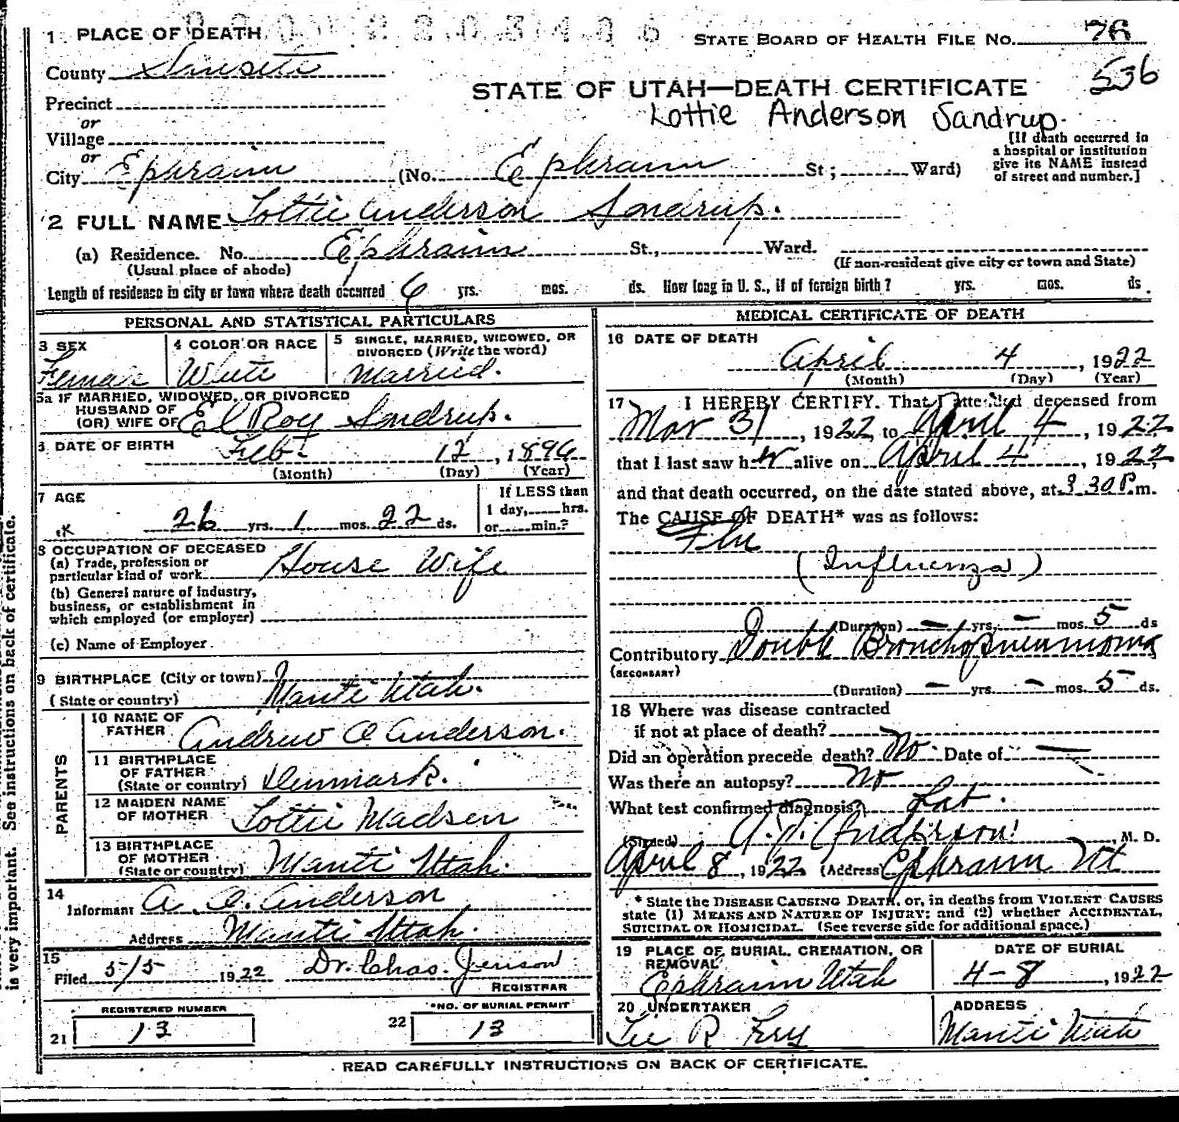 1 PLACE OF DEATH
STATE BOARD OF HEALTH FILE NO. 76
County Sanpete
536
STATE OF UTAH—DEATH CERTIFICATE
Precinct
or
Lottie Anderson Sandrup.
Village
or
[If death occurred in a hospital or institution give its NAME instead of street and number.]
City Ephraim (No. Ephraim St; Ward)
2 FULL NAME Lottie Anderson Sondrup.
(a) Residence. No. Ephraim St., Ward.
(Usual place of abode) (If non-resident give city or town and State)
Length of residence in city or town where death occurred 6 yrs. mos. ds. How long in U. S., if of foreign birth? yrs. mos. ds.
PERSONAL AND STATISTICAL PARTICULARS
3 SEX 4 COLOR OR RACE 5 SINGLE, MARRIED, WIDOWED, OR DIVORCED (Write the word)
Female White Married.
5a IF MARRIED, WIDOWED, OR DIVORCED
HUSBAND OF
(OR) WIFE OF El Roy Sondrup.
6 DATE OF BIRTH Feb. 12, 1896
(Month) (Day) (Year)
7 AGE If LESS than
26 yrs. 1 mos. 22 ds. 1 day, hrs.
or min.?
8 OCCUPATION OF DECEASED
(a) Trade, profession or
particular kind of work House Wife
(b) General nature of industry,
business, or establishment in
which employed (or employer)
(c) Name of Employer
9 BIRTHPLACE (City or town)
(State or country) Manti Utah.
PARENTS
10 NAME OF
FATHER Andrew O Anderson.
11 BIRTHPLACE
OF FATHER
(State or country) Denmark.
12 MAIDEN NAME
OF MOTHER Lottie Madsen
13 BIRTHPLACE
OF MOTHER
(State or country) Manti Utah.
14
Informant A. O. Anderson
Address Manti Utah.
15
Filed 5/5 1922 Dr. Chas. Jenson
REGISTRAR
REGISTERED NUMBER *NO. OF BURIAL PERMIT
21 13 22 13
MEDICAL CERTIFICATE OF DEATH
16 DATE OF DEATH
April 4, 1922
(Month) (Day) (Year)
17 I HEREBY CERTIFY. That I attended deceased from
Mar 31, 1922, to April 4, 1922
that I last saw her alive on April 4, 1922,
and that death occurred, on the date stated above, at 3 30 P.m.
The CAUSE OF DEATH* was as follows:
Flu
(Influenza)
(Duration) — yrs. — mos. 5 ds
Contributory Double Broncho pneumonia
(SECONDARY)
(Duration) — yrs. — mos. 5 ds.
18 Where was disease contracted
if not at place of death?
Did an operation precede death? No. Date of —
Was there an autopsy? No
What test confirmed diagnosis? Lab.
(Signed) Anderson M. D.
April 8, 1922 (Address) Ephraim Ut
* State the DISEASE CAUSING DEATH, or, in deaths from VIOLENT CAUSES
state (1) MEANS AND NATURE OF INJURY; and (2) whether ACCIDENTAL,
SUICIDAL OR HOMICIDAL. (See reverse side for additional space.)
19 PLACE OF BURIAL, CREMATION, OR
REMOVAL DATE OF BURIAL
Ephraim Utah 4-8, 1922
20 UNDERTAKER ADDRESS
R. Manti Utah
READ CAREFULLY INSTRUCTIONS ON BACK OF CERTIFICATE.
is very important. See instructions on back of certificate.